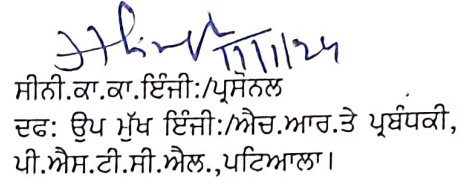 11/11/24
ਸੀਨੀ.ਕਾ.ਕਾ.ਇੰਜੀ:/ਪ੍ਰਸੋਨਲ
ਦਫ: ਉਪ ਮੁੱਖ ਇੰਜੀ:/ਐਚ.ਆਰ.ਤੇ ਪ੍ਰਬੰਧਕੀ,
ਪੀ.ਐਸ.ਟੀ.ਸੀ.ਐਲ.,ਪਟਿਆਲਾ।